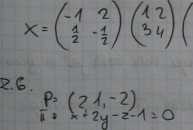 X = (-1 2 1/2 -1/2) (1 2 3 4) (
2.6.
P = (2 1, -2)
π = x + 2y - z - 1 = 0